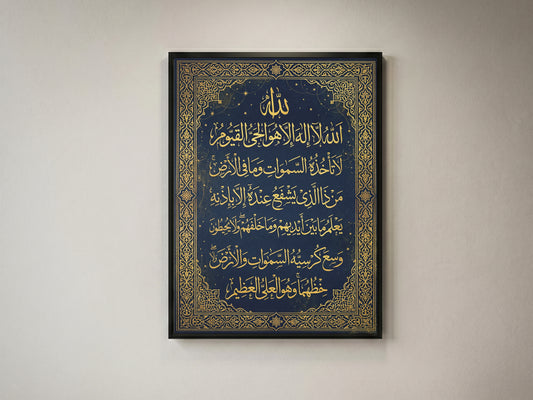 لله
الله لا إله إلا هو الحي القيوم
لا تأخذه السموات وما في الأرض
من ذا الذي يشفع عنده إلا بإذنه
يعلم ما بين أيديهم وما خلفهم ولا يحيطون
وسع كرسيه السموات والأرض ولا
حفظهما وهو العلي العظيم